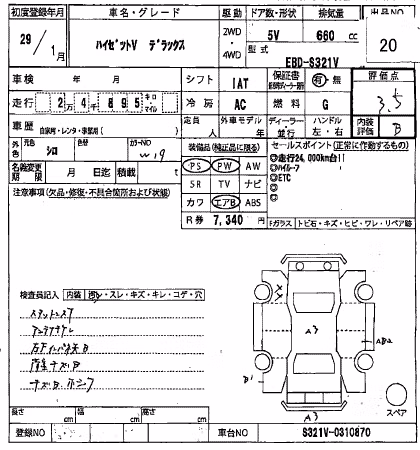 初度登録年月 車名・グレード 駆動 ドア数・形状 排気量 出品No
29/1月 ハイゼットV デラックス 2WD・4WD 5V 660 cc 20
型式 EBD-S321V
車検 年 月 シフト IAT 保証書 有・無 評価点
走行 2万4895 キロ・マイル 冷房 AC 燃料 G 3.5
車歴 自家用・レンタ・事業用( ) 定員 人 外車モデル 年 ディーラー・並行 ハンドル 左・右 内装評価 B
外色 元色 シロ 色替 カラーNO W19 装備品(純正品に限る) セールスポイント(正常に作動するもの)
名義変更期限 月 日迄 積載 t PS PW AW ◎走行24,000km台!!
注意事項(欠品・修復・不具合箇所および状態) SR TV ナビ ◎ハイルーフ
◎ETC
カワ エアB ABS
R券 7,340 円 Fガラス トビ石・キズ・ヒビ・ワレ・リペア跡
検査員記入 内装 汚れ・スレ・キズ・キレ・コゲ・穴
A3
B1
A3
スペア
長さ cm 幅 cm 高さ cm
登録NO 車台NO S321V-0310870